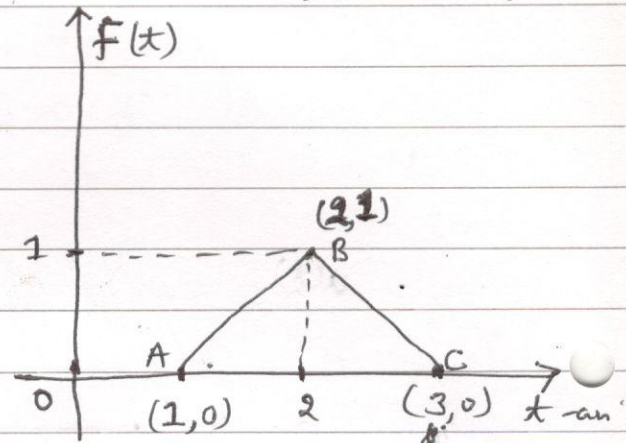 f(t)
(2,1)
1
B
A
C
0
(1,0)
2
(3,0)
t-